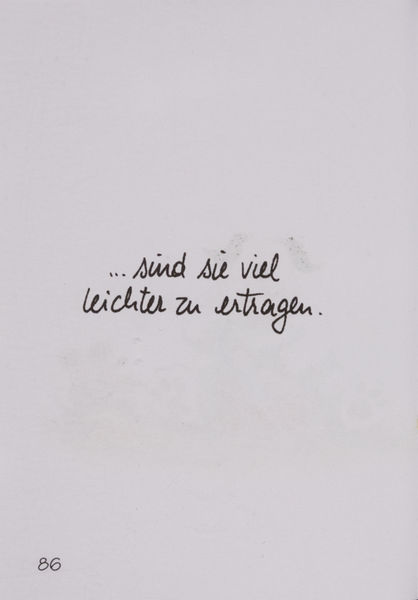 ... sind sie viel
leichter zu ertragen.
86